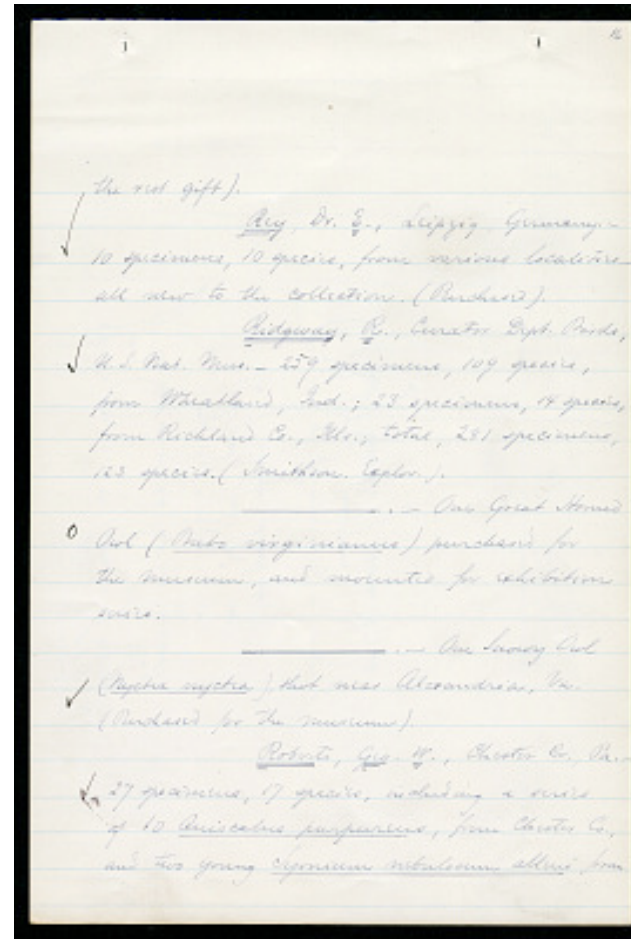 16
the rest gift).
Rey, Dr. E., Leipzig, Germany.—
10 specimens, 10 species, from various localities—
all new to the collection. (Purchased).
Ridgway, R., Curator Dept. Birds,
U.S. Nat. Mus. — 259 specimens, 109 species,
from Wheatland, Ind.; 23 specimens, 14 species,
from Richland Co., Ills.; total, 281 specimens,
123 species. (Smithson. Explor.).
———. — One Great Horned
Owl (Bubo virginianus) purchased for
the museum, and mounted for exhibition
series.
———. — One Snowy Owl
(Nyctea nyctea) shot near Alexandria, Va.
(Purchased for the museum).
Roberts, Geo. W., Chester Co., Pa.—
27 specimens, 17 species, including a series
of 10 Quiscalus purpureus, from Chester Co.,
and two young nebulosum alleni from